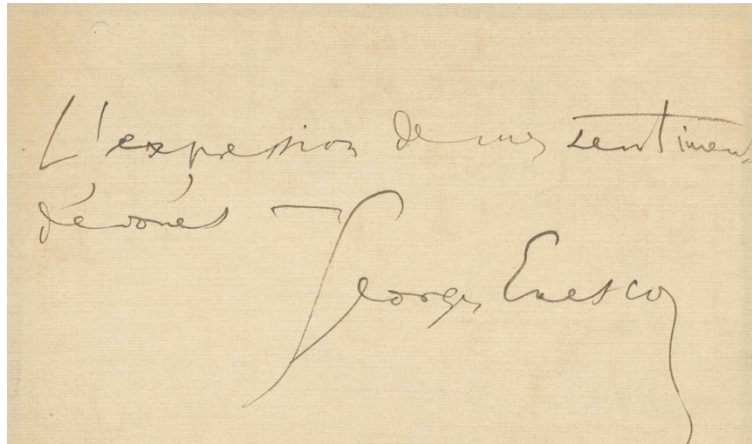 L'expression de mes sentiments
dévoués —
Georges Enesco